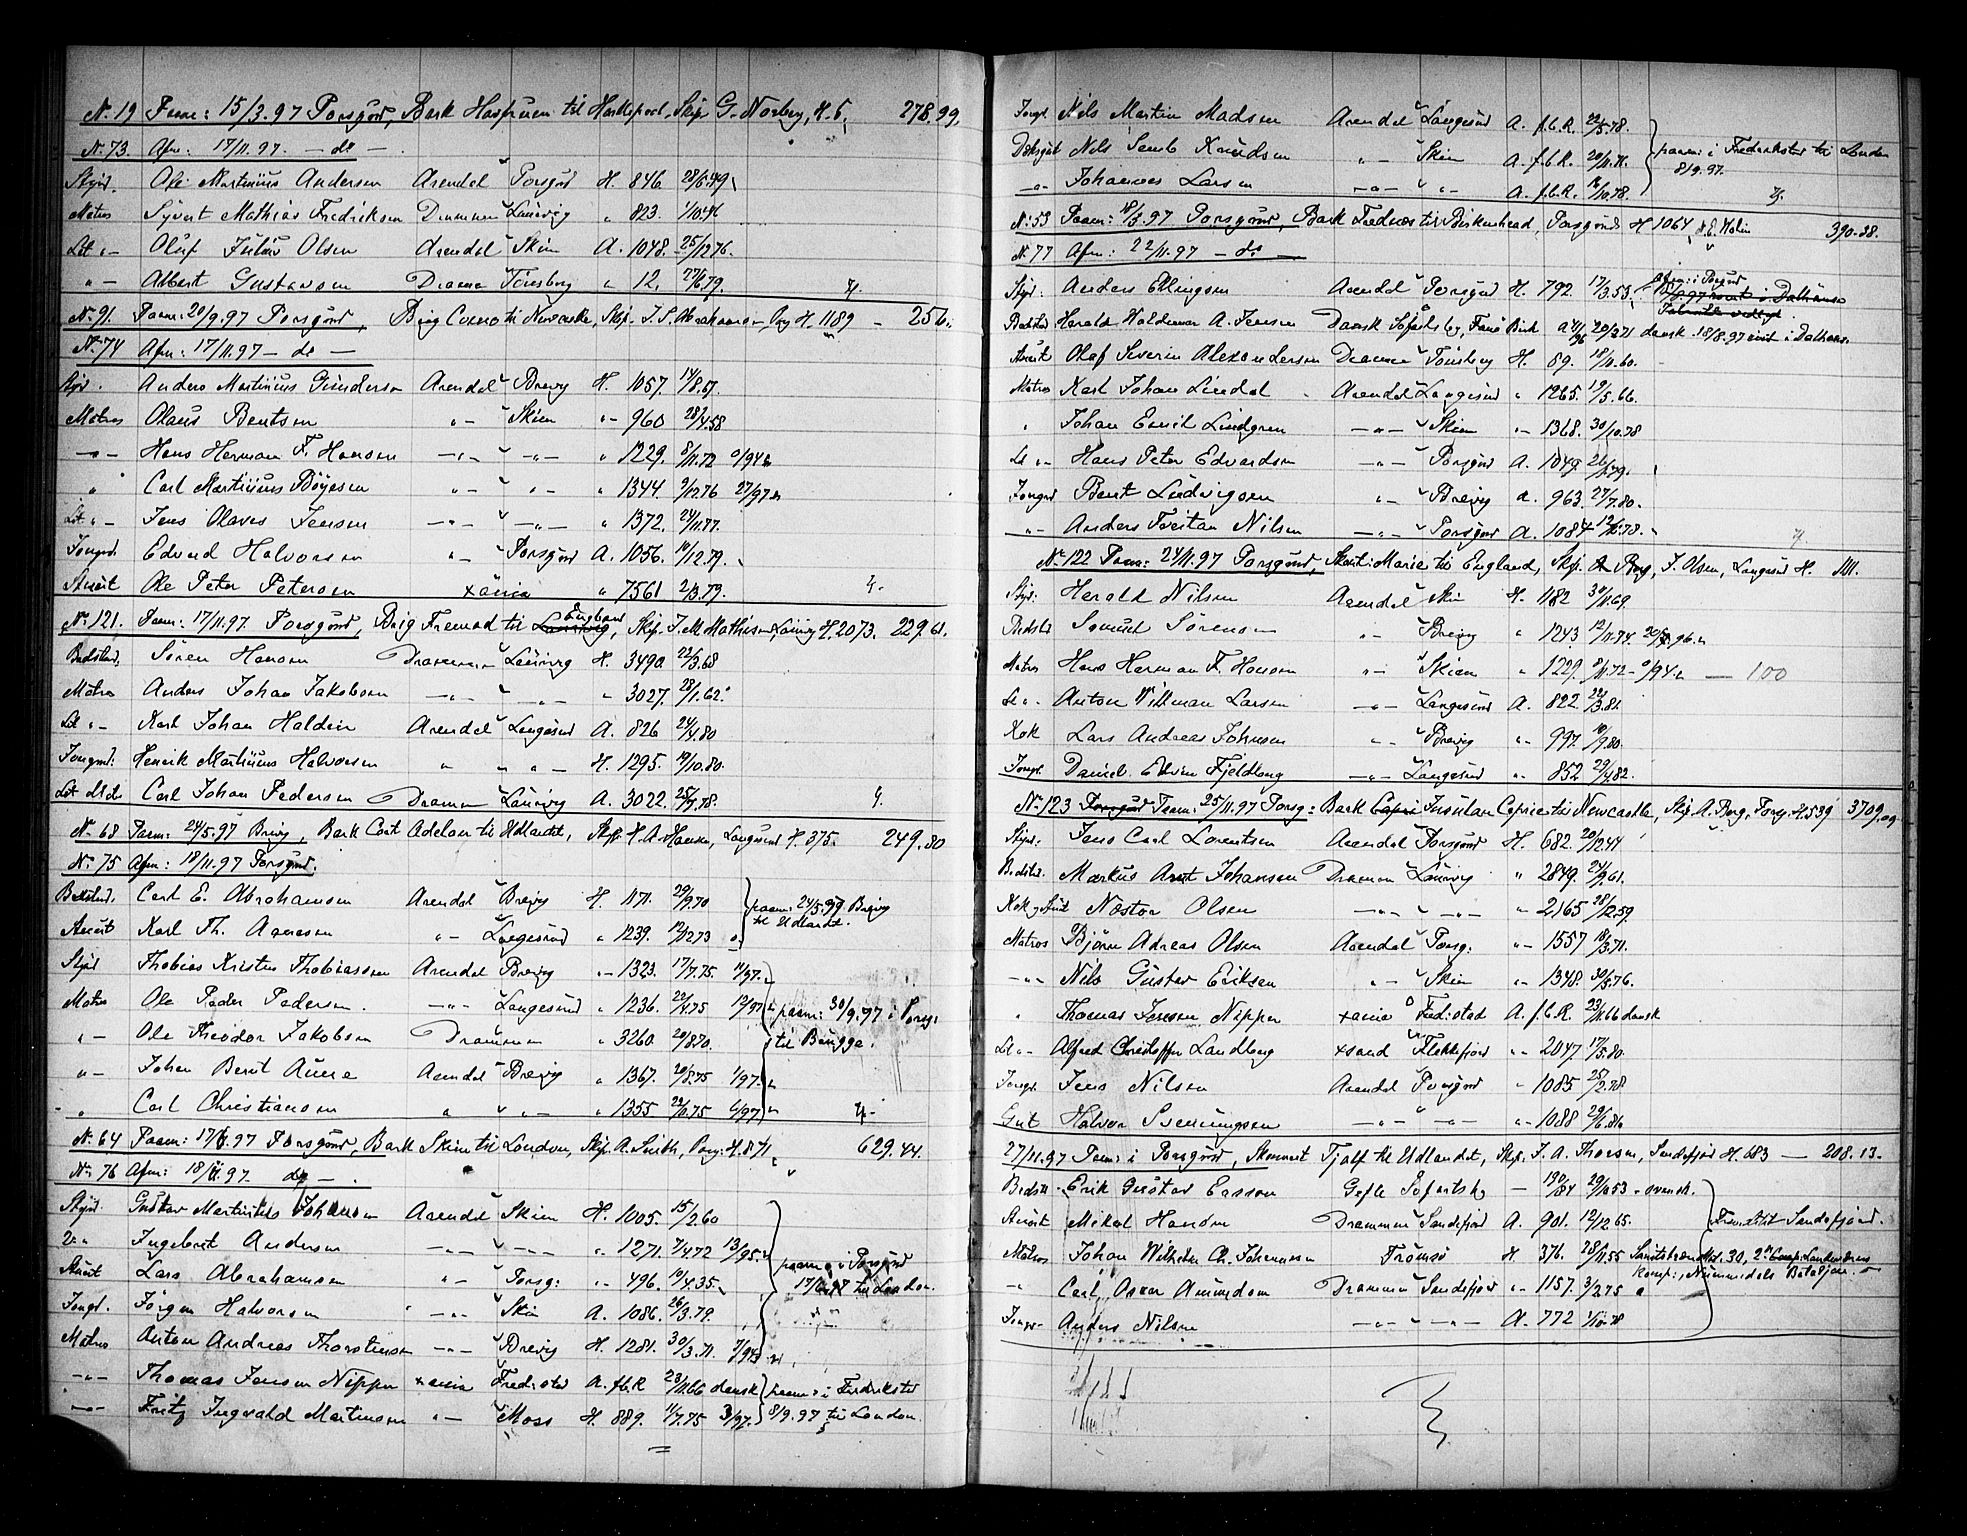 N. 19 Paam: 15/3.97 Porsgrd, Bark Havfruen til Hartlepool, Skip. G. Norberg, H. 5, 278.99.
N. 73. Afm: 17/11.97. — do —
Styrd. Ole Martinius Andersen Arendal Porsgrd H. 846 28/6.49
Matros Syvert Mathias Fredriksen Drammen Laurvig " 823. 1/10.46
Let " — Oluf Julius Olsen Arendal Skien A. 1048. 25/12.76.
" — Albert Gustavsen Dramm Tønsberg " 12. 27/6.79.
N. 91. Paam: 20/9.97 Porsgrund, Brig Como til Newcastle, Skip. J. S. Abrahams—, Brvg H. 1189 — 256.
N. 74 Afm: 17/11.97 — do —
Styd. Anders Martinius Gundersen Arendal Brevig H. 1057. 14/8.67.
Matros Olaus Bentsen " — Skien " — 960 28/4.58
— " — Hans Herman F. Hansen — " — — " — " 1229. 8/11.72 0/94
" Carl Martinius Bøyesen " — " — " 1344. 9/12.76 27/97
Let " — Jens Olaves Jensen — " — — " — " 1372. 24/11.77.
Jongmd. Edvard Halvorsen " — Porsgrund A. 1056. 10/12.79.
Stuert Ole Peter Petersen xania " 7561 2/3.79.
N. 121. Paam: 17/11.97. Porsgrund, Brig Fremad til Laurvig England, Skip. J. M. Mathisen Laurvig H. 2073. 229.61.
Bedstmd. Søren Hansen Drammen Laurvig H. 3490. 22/3.68
Matros Anders Johan Jakobsen — " — — " — " 3027. 28/1.62.
Let " — Karl Johan Haldin Arendal Langesund A. 826 24/4.80
Jongmd. Henrik Martinius Halvorsen " " " — H. 1295. 14/10.80.
Let do do Carl Johan Pedersen Drammen Laurvig A. 3022. 25/7.78.
N. 68 Paam: 24/5.97 Brevig, Bark Cort Adelaer til Udlandet, Skip. H. A. Hansen, Langesund H. 375. 249.80
N. 75 Afm: 18/11.97 Porsgrund.
Bedstmd. Carl E. Abrahamsen Arendal Brevig H. 1171. 29/9.70 paam: 24/5.97 Brevig
Stuert Karl Th. Aanesen " — Langesund " 1239. 12/12.73 til Udlandet.
Styd Thobias Kristen Thobiassen Arendal Brevig " — 1323. 17/7.75 11/97.
Matros Ole Peder Pedersen. — " — Langesund " 1236. 22/4.75 12/97 paam: 30/9.97 i Porsg:
" — Ole Theodor Jakobsen Drammen " 3260. 29/8.70. til Brügge.
" — Johan Bernt Aanre Arendal Brevig " 1367. 20/8.75 1/97.
" Carl Christiansen " " — " 1355 22/11.75 6/97
N. 64 Paam: 17/6.97 Porsgrund, Bark Skien til London, Skip. A. Smith, Porsg: H. 871, 629.44.
N. 76 Afm: 18/11.97. do —
Styrd. Gustav Martinius Johansen Arendal Skien H. 1005. 15/2.60
2. " Ingebret Andersen — " — — " — " 1271. 7/4.72 13/95
Stuert Lars Abrahamsen " — Porsg: " — 496. 10/4.35. paam: i Porsgrund
Jongd. Jørgen Halvorsen " — Skien A. 1086. 26/3.79. 17/6.97 til London.
Matros Anton Andreas Thorstensen — " — Brevig H. 1281. 30/3.71. 7/94
— " — Thomas Jensen Nipper xania Fredrstad A. f.b.R 23/11.66 dansk paam: i Fredrikstad
— " — Fritz Ingvald Martinsen " — Moss H. 889. 11/7.75 3/97. 8/9.97 til London.
Jongd. Nils Martin Madsen Arendal Langesund A. f.b.R. 22/5.78.
Dæksgut Nils Jensb Knudsen " — Skien A. f.b.R. 20/11.76. paam: i Fredrikstad til London
— " — Johannes Larsen — " — " — A. f.b.R. 16/10.78. 8/9.97.
N. 53 Paam: 18/5.97 Porsgrund, Bark Frednæs til Birkenhead, Porsgrund H 1064, N. E. Holm 390.38.
N. 77 Afm: 22/11.97 — do —
Styd: Anders Ellingsen Arendal Porsgrund H. 792. 17/3.53. afm: i Porsgrund
Bedstmd Harald Haldemar A. Jensen Dansk Søfartsbg, Fanø Birk 20/2.71 dansk. 18/8.97 mst i Dalhous.
Stuert Olaf Severin Alexandersen Drammen Tønsberg H. 89. 18/11.60.
Matros Karl Johan Lindal Arendal Langesund " 1265. 19/5.66.
" Johan Emil Lindgren — " — Skien " — 1368. 30/10.78
Let " — Hans Peter Edvardsen — " — Porsgrund A. 1049
Jongmd Bernt Ludvigsen " — Brevig A. 963 27/7.80.
" — Anders Treitan Nilsen — " — Porsgrund A. 1084 12/10.78.
N. 122 Paam: 24/11.97 Porsgrund, Skont: Marie til England, Skip. J. Olsen, Langesund H. 111.
Styd: Harald Nilsen Arendal Skien H. 1182 30/11.69.
Bedstmd Samuel Sørensen " — Brevig " 1243. 12/11.74. 20/96.
Matros Hans Herman F. Hansen " — Skien " 1229. 8/11.72 — 0/94 — 100
Let " Anton Villman Larsen — " — Langesund A. 822. 22/3.81.
Kok Lars Andreas Johnsen " — Brevig " — 997. 10/9.80.
Jongd. Daniel Edvin Fjeldberg — " — Langesund " 852 29/4.82.
N. 123 Porsgrund Paam: 25/11.97 Porsg: Bark Capri Insulan Capri til Newcastle, Skip. A. Borg, Porsg. H. 539 3709.09
Styd: Jens Carl Lorentsen Arendal Porsgrund H. 682. 20/12.44
Bedstmd. Markus Arnt Johansen Drammen Laurvig " 2849. 24/9.61.
Kok, Stuert Nestor Olsen — " — — " — " 2165 28/12.59
Matros Bjørn Adreas Olsen Arendal Porsg: " — 1557 18/3.71.
— " — Nils Gustav Eriksen " — Skien " — 1348. 30/5.76.
" Thomas Jensen Nipper xania Fredrstad A. f.b.R. 23/11.66 dansk
Let " — Alfred Christoffer Landberg xsand Flekkefjord " — 2047 17/5.80.
Jongd. Jens Nilsen Arendal Porsgrund " 1085 25/2.78
Gut Halvor Svenungsen — " — — " — " 1088 29/6.81
27/11.97 Paam: i Porsgrund, Skonnert Tjalf til Udlandet, Skip. J. A. Thorsen, Sandefjord H. 683 — 208.13.
Bedstm. Erik Gustav Ersson Gefle Søfartsbg — 190/184 29/10.53 svensk.
Stuert Mikal Hansen Drammen Sandefjord A. 901. 12/12.65. Fremstilt Sandefjord.
Matros Johan Wilhelm Ch. Johannesen Tromsø H 376. 28/11.55 No. 30, 2den Comp. Landværns
— " Carl Oscar Amundsen Drammen Sandefjord " — 1157. 3/2.75 komp: Nummedals Bataljon.
Jongd. Anders Nilsen — " — — " — A. 772 1/10.78